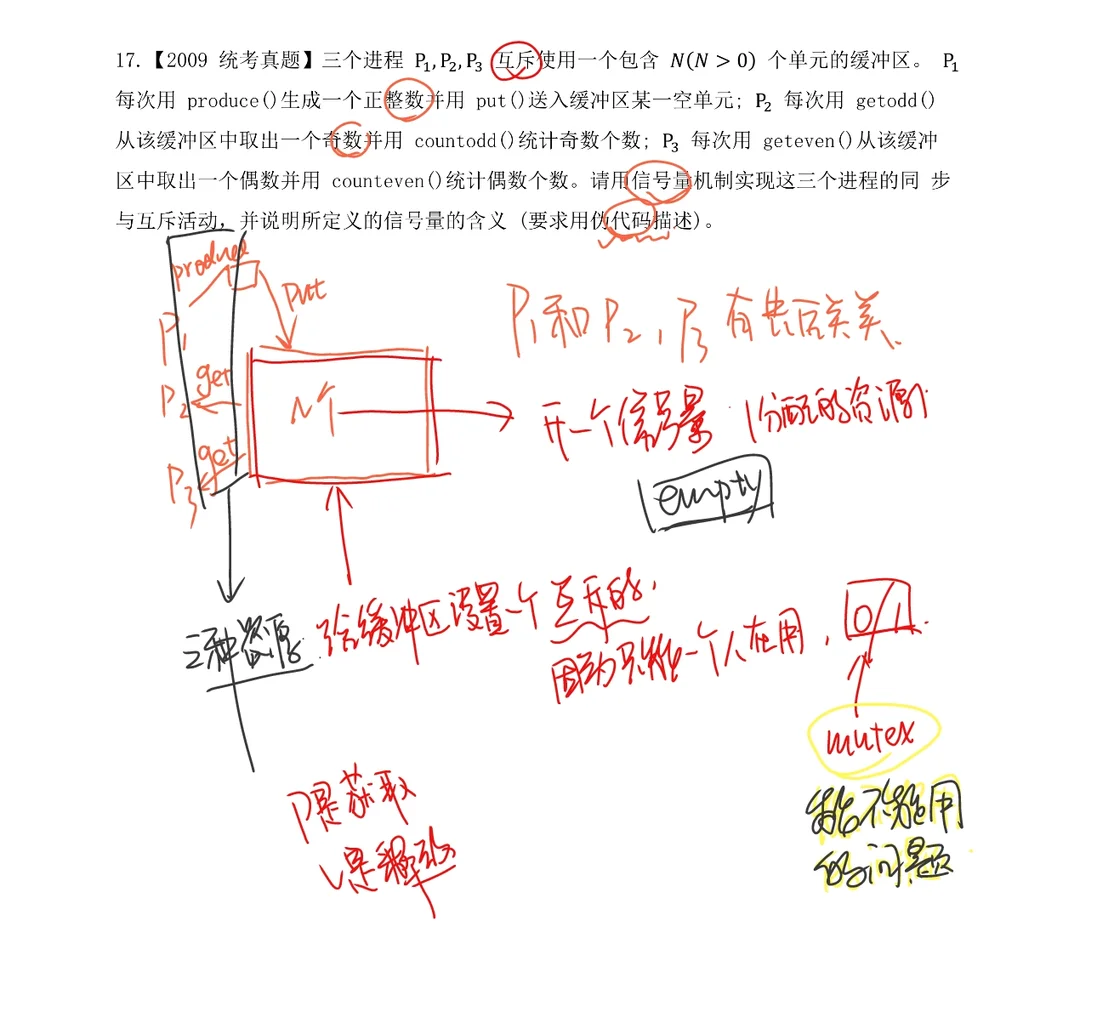 17.【2009 统考真题】三个进程 P₁,P₂,P₃ 互斥使用一个包含 N(N > 0) 个单元的缓冲区。 P₁
每次用 produce()生成一个正整数并用 put()送入缓冲区某一空单元; P₂ 每次用 getodd()
从该缓冲区中取出一个奇数并用 countodd()统计奇数个数; P₃ 每次用 geteven()从该缓冲
区中取出一个偶数并用 counteven()统计偶数个数。请用信号量机制实现这三个进程的同 步
与互斥活动, 并说明所定义的信号量的含义 (要求用伪代码描述)。
produce
put
P₁
P₁和P₂,P₃有先后关系
get
P₂
N个
开一个信号量 (分配的资源)
get
P₃
empty
三种资源
给缓冲区设置一个互斥的.
因为只能一个人在用,
0/1
mutex
P是获取
V是释放
能不能用
的问题